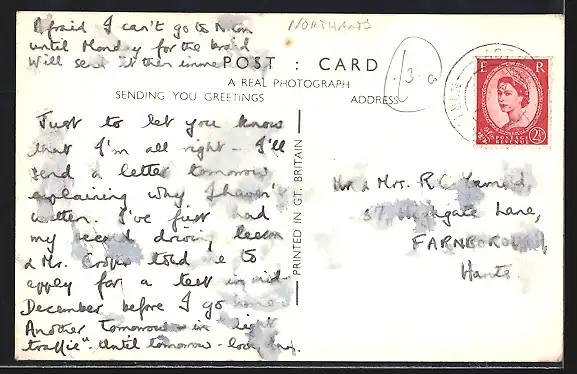 Afraid I can't go to
until Monday for the braid
Will send it then
NORTHANTS
POST : CARD
A REAL PHOTOGRAPH
SENDING YOU GREETINGS
ADDRESS
E R
POSTAGE
REVENUE
2½
Just to let you know
that I'm all right - I'll
send a letter tomorrow
explaining why I haven't
written. I've just had
my second driving lesson
& Mr. Cooper told me to
apply for a test in mid-
December before I go home -
Another Tomorrow - in "light
traffic". Until tomorrow - love
PRINTED IN GT. BRITAIN
Mr & Mrs. R.C.
Lane,
FARNBOROUGH,
Hants.